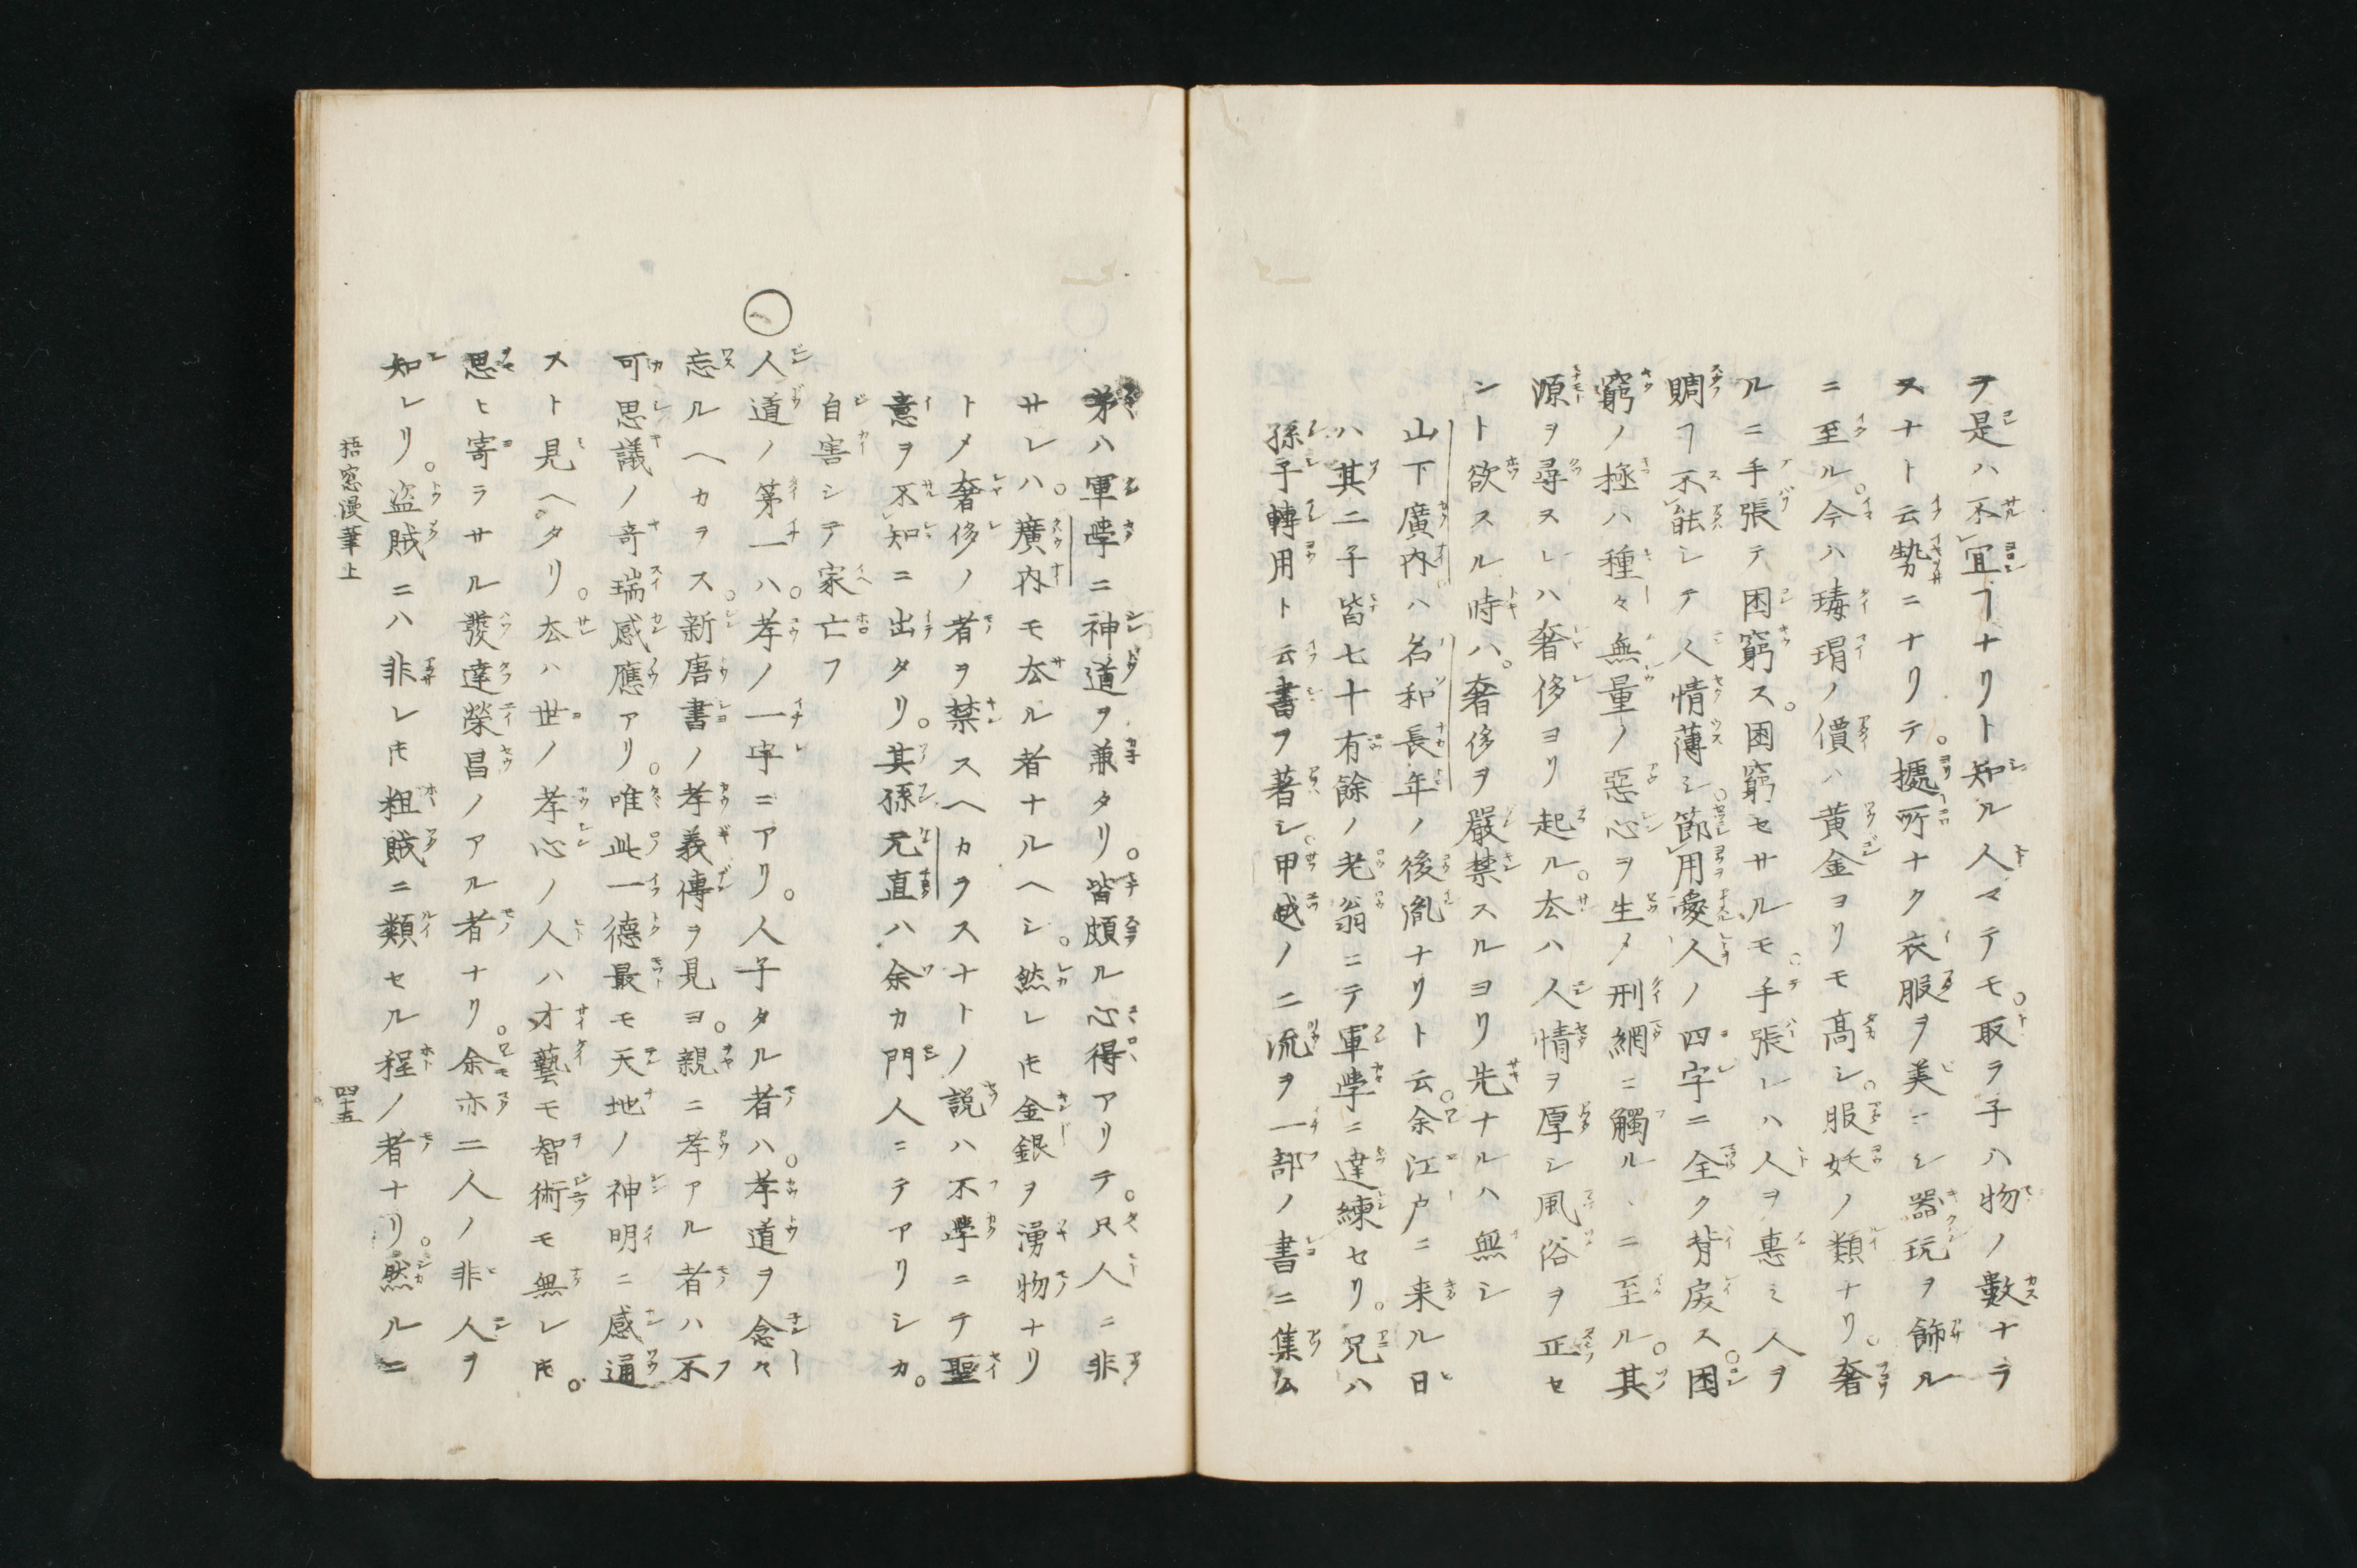 ヲ是ハ不宜ヿナリト知ル人マテモ。取ラ子ハ物ノ數ナラ
ヌナト云㔟ニナリテ。據所ナク衣服ヲ美ニシ器玩ヲ飾ル
ニ至ル。今ハ瑇瑁ノ價ハ黄金ヨリモ髙シ。服妖ノ類ナリ。奢
ルニ手張テ困窮ス。困窮セサルモ。手張レハ人ヲ惠ミ人ヲ
賙フ不能シテ人情薄シ。節用愛人ノ四字ニ全ク背戻ス。困
窮ノ極ハ種々無量ノ惡心ヲ生メ刑網ニ觸ルヽニ至ル。其
源ヲ尋ヌレハ奢侈ヨリ起ル。厺ハ人情ヲ厚シ風俗ヲ正セ
ント欲スル時ハ。奢侈ヲ嚴禁スルヨリ先ナルハ無シ
山下廣内ハ名和長年ノ後胤ナリト云。余江戸ニ来ル日
ハ其二子皆七十有餘ノ老翁ニテ軍學ニ達練セリ。兄ハ
孫子轉用ト云書フ著シ。甲越ノ二流ヲ一部ノ書ニ集ム
弟ハ軍學ニ神道ヲ兼タリ。皆頗ル心得アリテ。只人ニ非
サレハ。廣内モ厺ル者ナルヘシ。然レ𪜈金銀ヲ湧物ナリ
トメ奢侈ノ者ヲ禁スヘカラストノ説ハ不學ニテ聖
意ヲ不知ニ出タリ。其孫元直ハ余カ門人ニテアリシカ。
自害シテ家亡フ
人道ノ第一ハ。孝ノ一字ニアリ。人子タル者ハ。孝道ヲ念々
忘ルヘカラス。新唐書ノ孝義傳ヲ見ヨ。親ニ孝アル者ハ不
可思議ノ奇瑞感應アリ。唯此一德最モ天地ノ神明ニ感通
スト見ヘタリ。厺ハ世ノ孝心ノ人ハ才藝モ智術モ無レ𪜈。
思ヒ寄ラサル發達榮昌ノアル者ナリ。余亦二人ノ非人ヲ
知レリ。盗賊ニハ非レ𪜈粗賊ニ類セル程ノ者ナリ。然ルニ
梧窓漫筆上
四十五